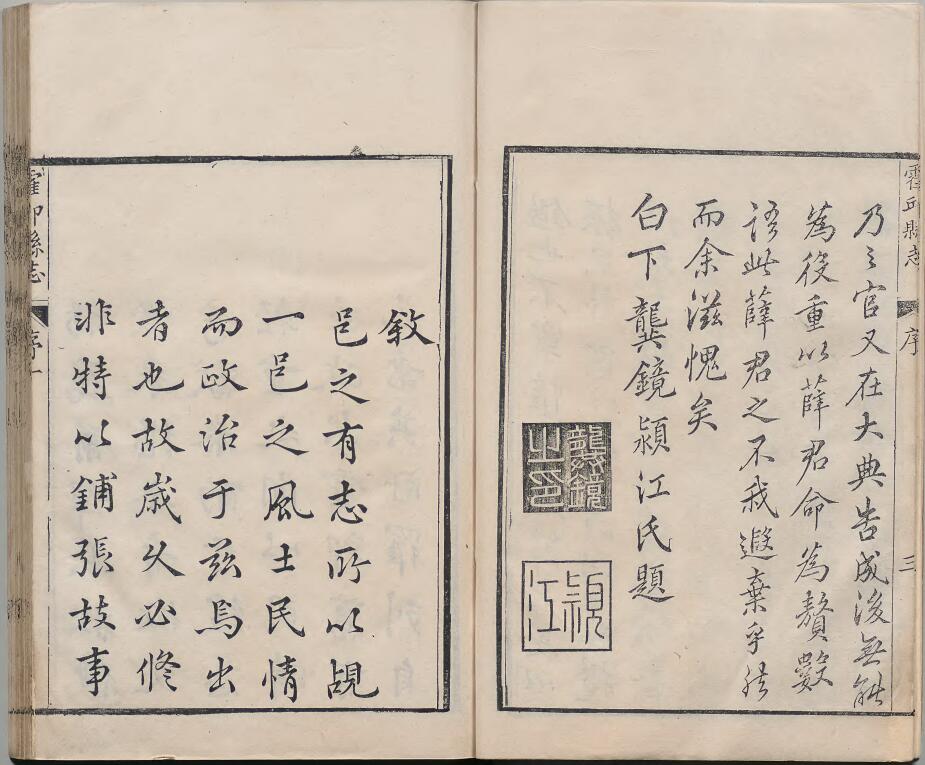 霍邱縣志
序
三
乃之官又在大典告成後無能
為役重以薛君命為贅數
語此薛君之不我遐棄乎然
而余滋愧矣
白下龔鏡潁江氏題
龔鏡
之印
潁
江
敘
邑之有志所以覘
一邑之風土民情
而政治于茲焉出
者也故歲久必修
非特以鋪張故事
霍邱縣志
序
一